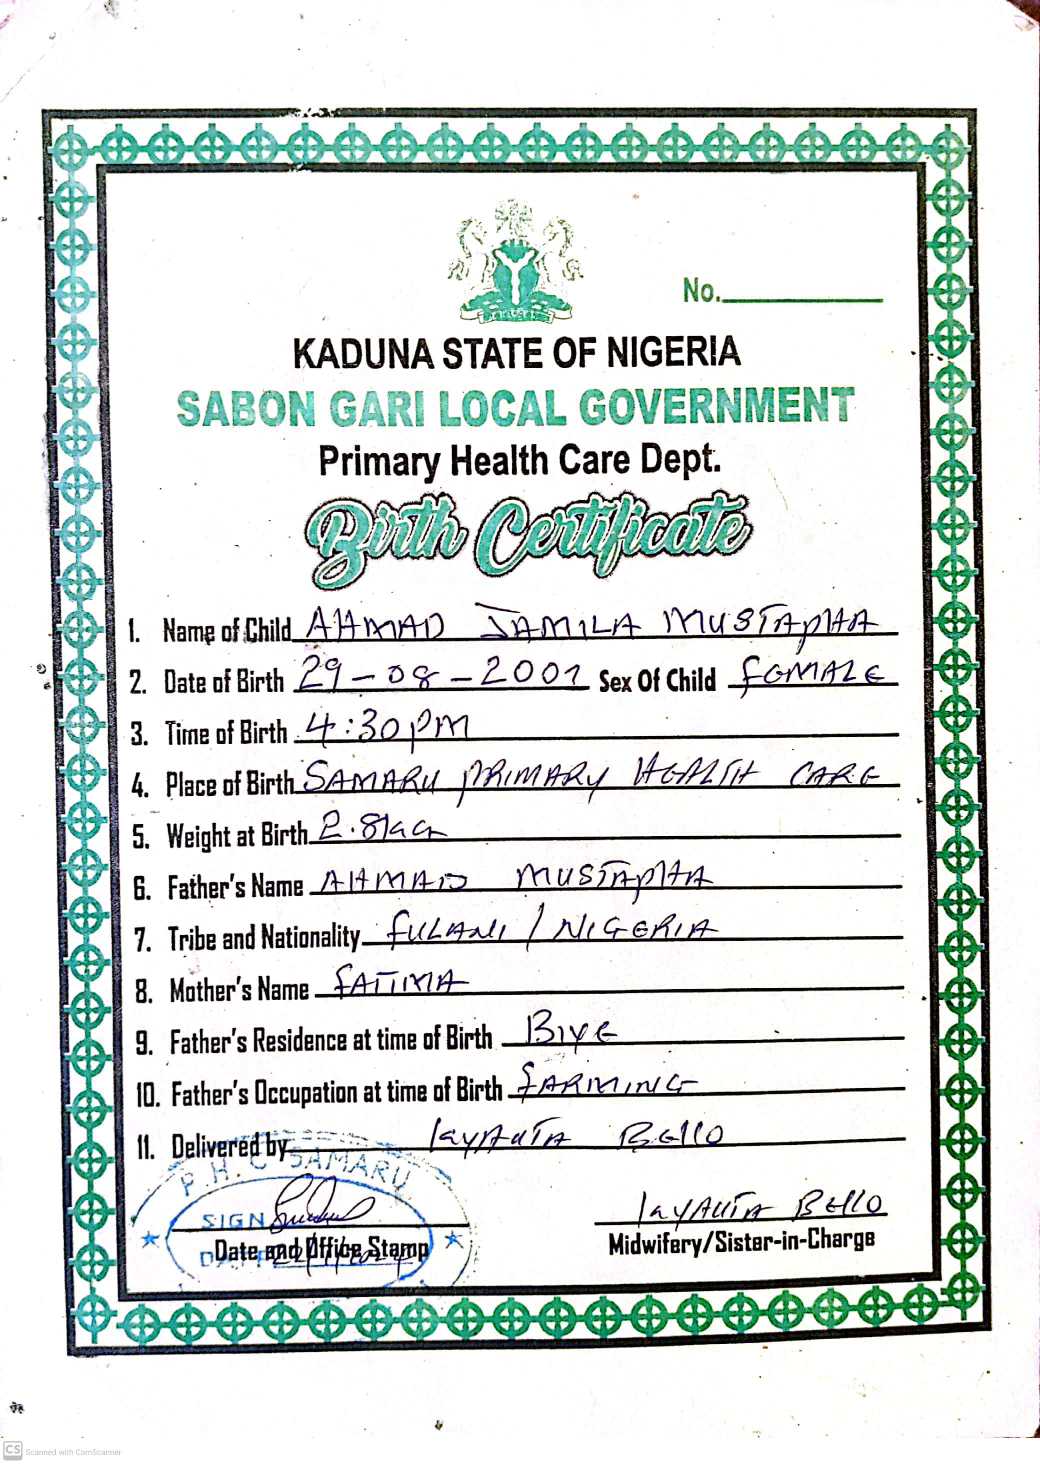 No.
KADUNA STATE OF NIGERIA
SABON GARI LOCAL GOVERNMENT
Primary Health Care Dept.
Birth Certificate
1. Name of Child AHMAD JAMILA MUSTAPHA
2. Date of Birth 29-08-2001 Sex Of Child FEMALE
3. Time of Birth 4:30PM
4. Place of Birth SAMARU PRIMARY HEALTH CARE
5. Weight at Birth
6. Father's Name AHMAD MUSTAPHA
7. Tribe and Nationality FULANI / NIGERIA
8. Mother's Name FATIMA
9. Father's Residence at time of Birth BIYE
10. Father's Occupation at time of Birth FARMING
11. Delivered by BELLO
P.H.C SAMARU
SIGN
BELLO
Date and Office Stamp
Midwifery/Sister-in-Charge
CS Scanned with CamScanner